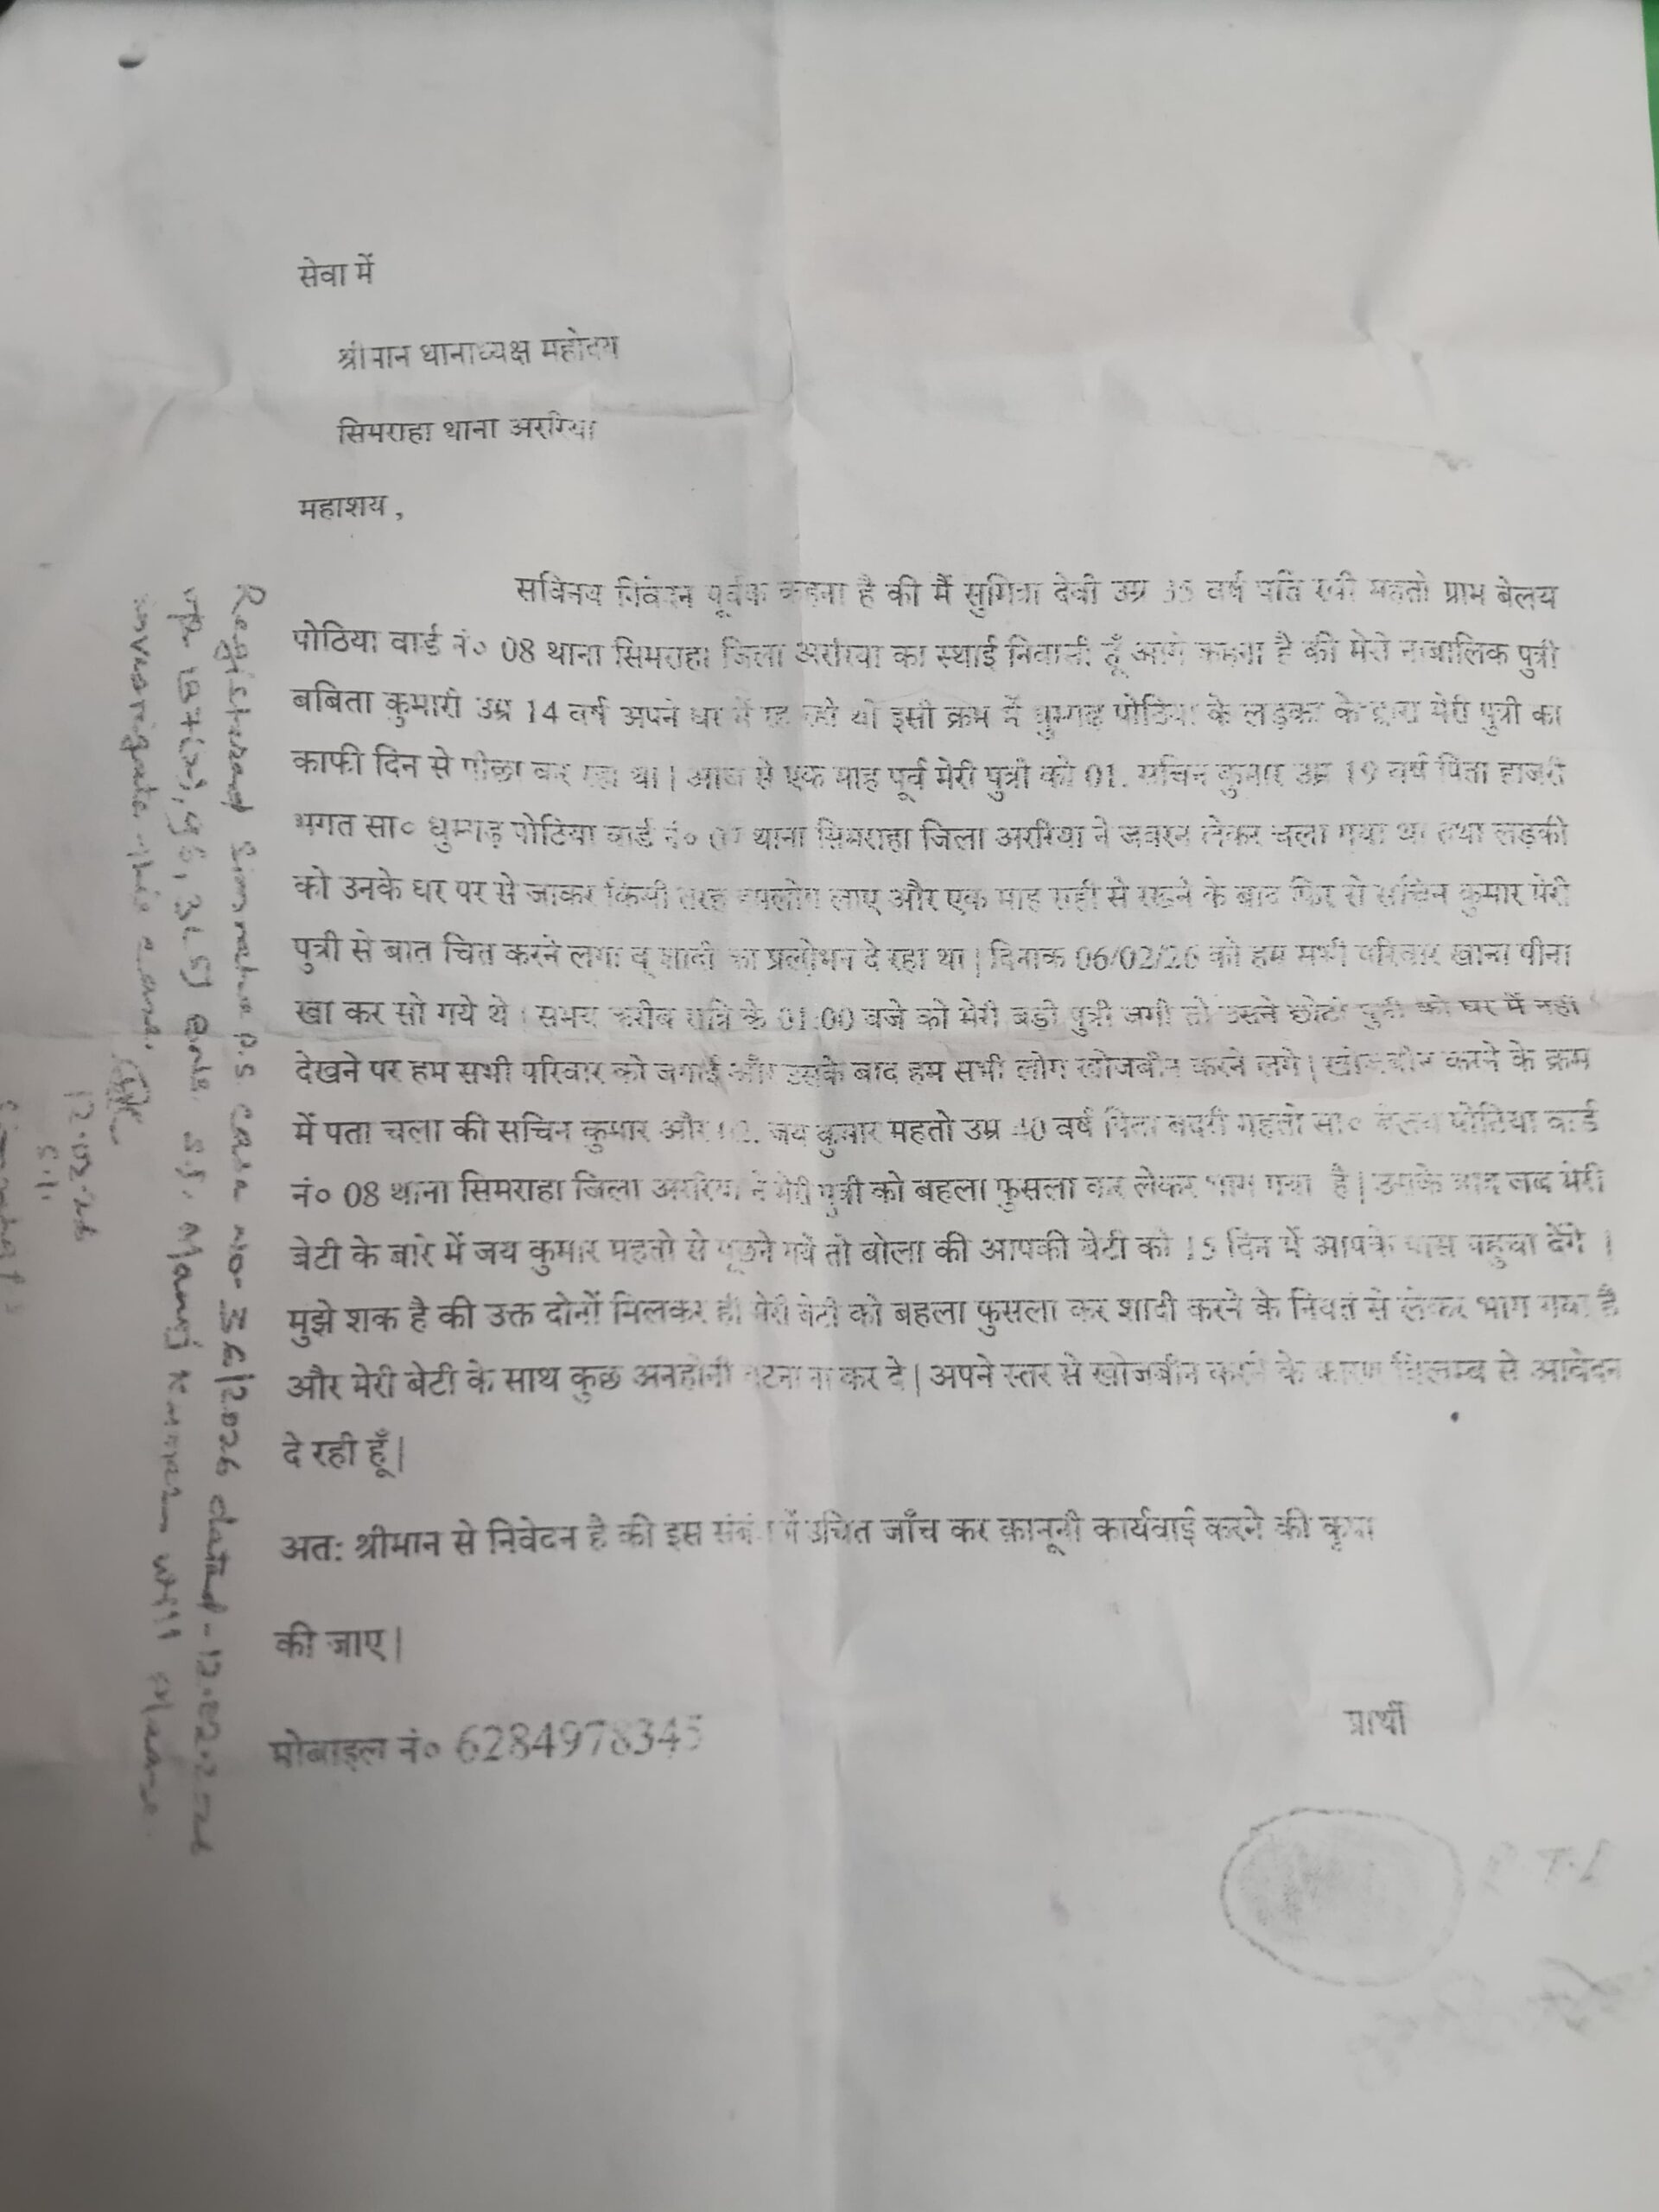 सेवा में
श्रीमान थानाध्यक्ष महोदय
सिमराहा थाना अररिया
महाशय ,
सविनय निवेदन पूर्वक कहना है की मैं सुमित्रा देवी उम्र 35 वर्ष पति रवी महतो ग्राम बेलय
पोठिया वार्ड नं० 08 थाना सिमराहा जिला अररिया का स्थाई निवासी हूँ आगे कहना है की मेरी नाबालिक पुत्री
बबिता कुमारी उम्र 14 वर्ष अपने घर में रह रही थी इसी क्रम में धुमगढ़ पोठिया के लड़का के द्वारा मेरी पुत्री का
काफी दिन से पीछा कर रहा था | आज से एक माह पूर्व मेरी पुत्री को 01. सचिन कुमार उम्र 19 वर्ष पिता हाजरी
भगत सा० धुमगढ़ पोठिया वार्ड नं० 07 थाना सिमराहा जिला अररिया ने जबरन लेकर चला गया था तथा लड़की
को उनके घर पर से जाकर किसी तरह हमलोग लाए और एक माह सही से रखने के बाद फिर से सचिन कुमार मेरी
पुत्री से बात चित करने लगा व् शादी का प्रलोभन दे रहा था | दिनाक 06/02/26 को हम सभी परिवार खाना पीना
खा कर सो गये थे | समय करीब रात्रि के 01:00 बजे को मेरी बड़ी पुत्री जगी तो उसने छोटी पुत्री को घर में नहीं
देखने पर हम सभी परिवार को जगाई और उसके बाद हम सभी लोग खोजबीन करने लगे | खोजबीन करने के क्रम
में पता चला की सचिन कुमार और 02. जय कुमार महतो उम्र 40 वर्ष पिता बदरी महतो सा० बेलय पोठिया वार्ड
नं० 08 थाना सिमराहा जिला अररिया ने मेरी पुत्री को बहला फुसला कर लेकर भाग गया है | उसके बाद जब मेरी
बेटी के बारे में जय कुमार महतो से पूछने गये तो बोला की आपकी बेटी को 15 दिन में आपके पास पहुचा देंगे |
मुझे शक है की उक्त दोनों मिलकर ही मेरी बेटी को बहला फुसला कर शादी करने के नियत से लेकर भाग गया है
और मेरी बेटी के साथ कुछ अनहोनी घटना ना कर दे | अपने स्तर से खोजबीन करने के कारण विलम्ब से आवेदन
दे रही हूँ |
अत: श्रीमान से निवेदन है की इस संबंध में उचित जाँच कर क़ानूनी कार्यवाई करने की कृपा
की जाए |
मोबाइल नं० 6284978345
प्रार्थी
Registered Simraha P.S. case no- 36/2026 dated - 12.02.2026
S.I. Manoj Kumar will please
investigate this case.
12.02.26
S.I.